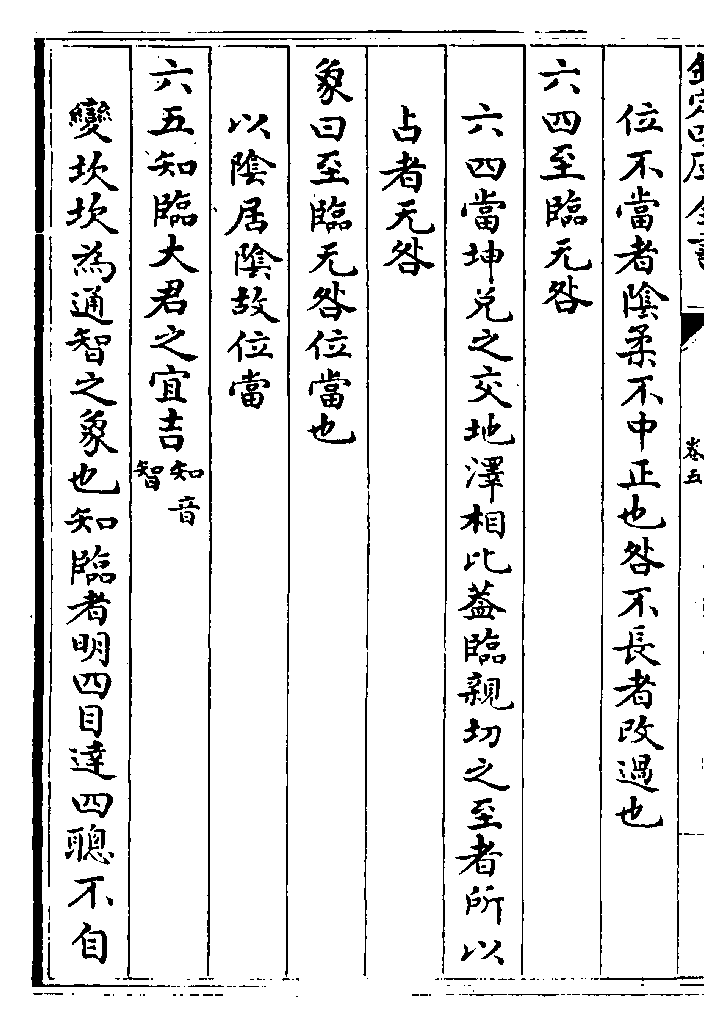 欽定四庫全書
卷五
位不當者陰柔不中正也咎不長者改過也
六四至臨无咎
六四當坤兌之交地澤相比蓋臨親切之至者所以
占者无咎
象曰至臨无咎位當也
以陰居陰故位當
六五知臨大君之宜吉知音智
變坎坎為通智之象也知臨者明四目達四聰不自